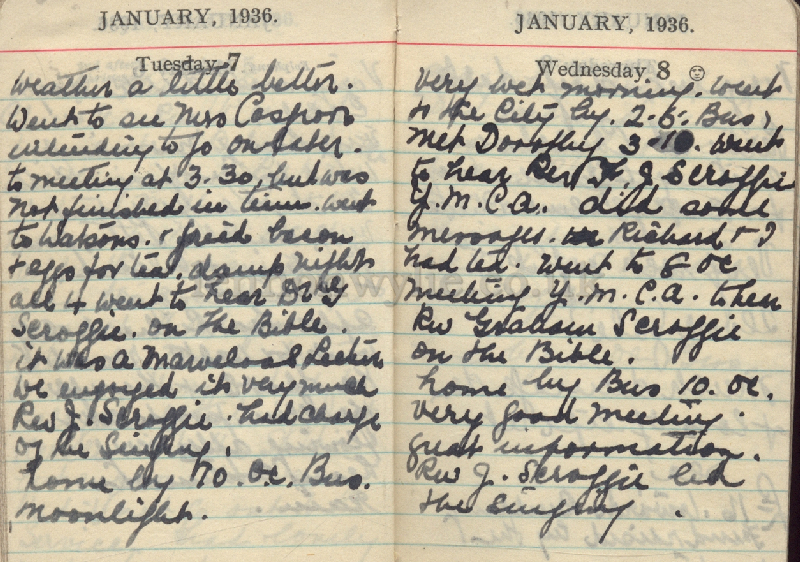 JANUARY, 1936.
Tuesday 7
Weather a little better.
Went to see Mrs
intending to go on later.
to meeting at 3.30, but was
not finished in time. went
to Watsons. + fried bacon
+ eggs for tea, damp night
all 4 went to hear Dr G
Scroggie. on the Bible.
it was a Marvelous Lecture
we enjoyed it very much
Rev J. Scroggie. had charge
of the Singing.
home by 10. Oc. Bus.
moonlight.
JANUARY, 1936.
Wednesday 8
Very wet morning. went
to the City by. 2-5. Bus,
met Dorothy 3-10. went
to hear Rev F. J Scroggie
Y.M.C.A. did some
messages. Richard + I
had tea. Went to 6 Oc
meeting Y.M.C.A. to hear
Rev Graham Scroggie
on the Bible.
home by Bus 10. Oc.
Very good Meeting.
great information.
Rev J. Scroggie led
the singing.